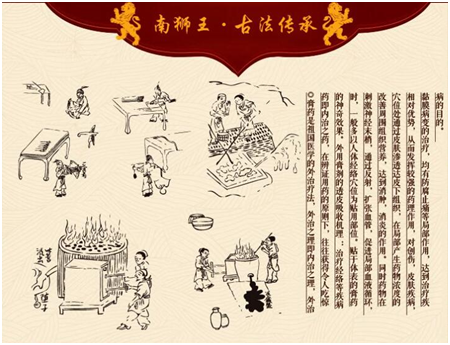 南狮王·古法传承
◎膏药是祖国医学的外治疗法，外治之理即内治之理，外治
药即内治之药，在辨证用药的原则下，往往获得令人吃惊
的神奇效果。外用膏剂的透皮吸收机理：治疗经络等疾病
时，一般多以人体经络穴位为贴用部位。贴于体表的膏药
刺激神经末梢，通过反射，扩张血管，促进局部血液循环，
改善周围组织营养，达到消肿，消炎的作用。同时药物在
穴位处通过皮肤渗透达皮下组织，在局部产生药物浓度的
相对优势，从而发挥较强的药理作用，对创伤，皮肤疾病
黏膜病变的治疗，均有防腐止痛等局部作用，达到治疗疾
病的目的。